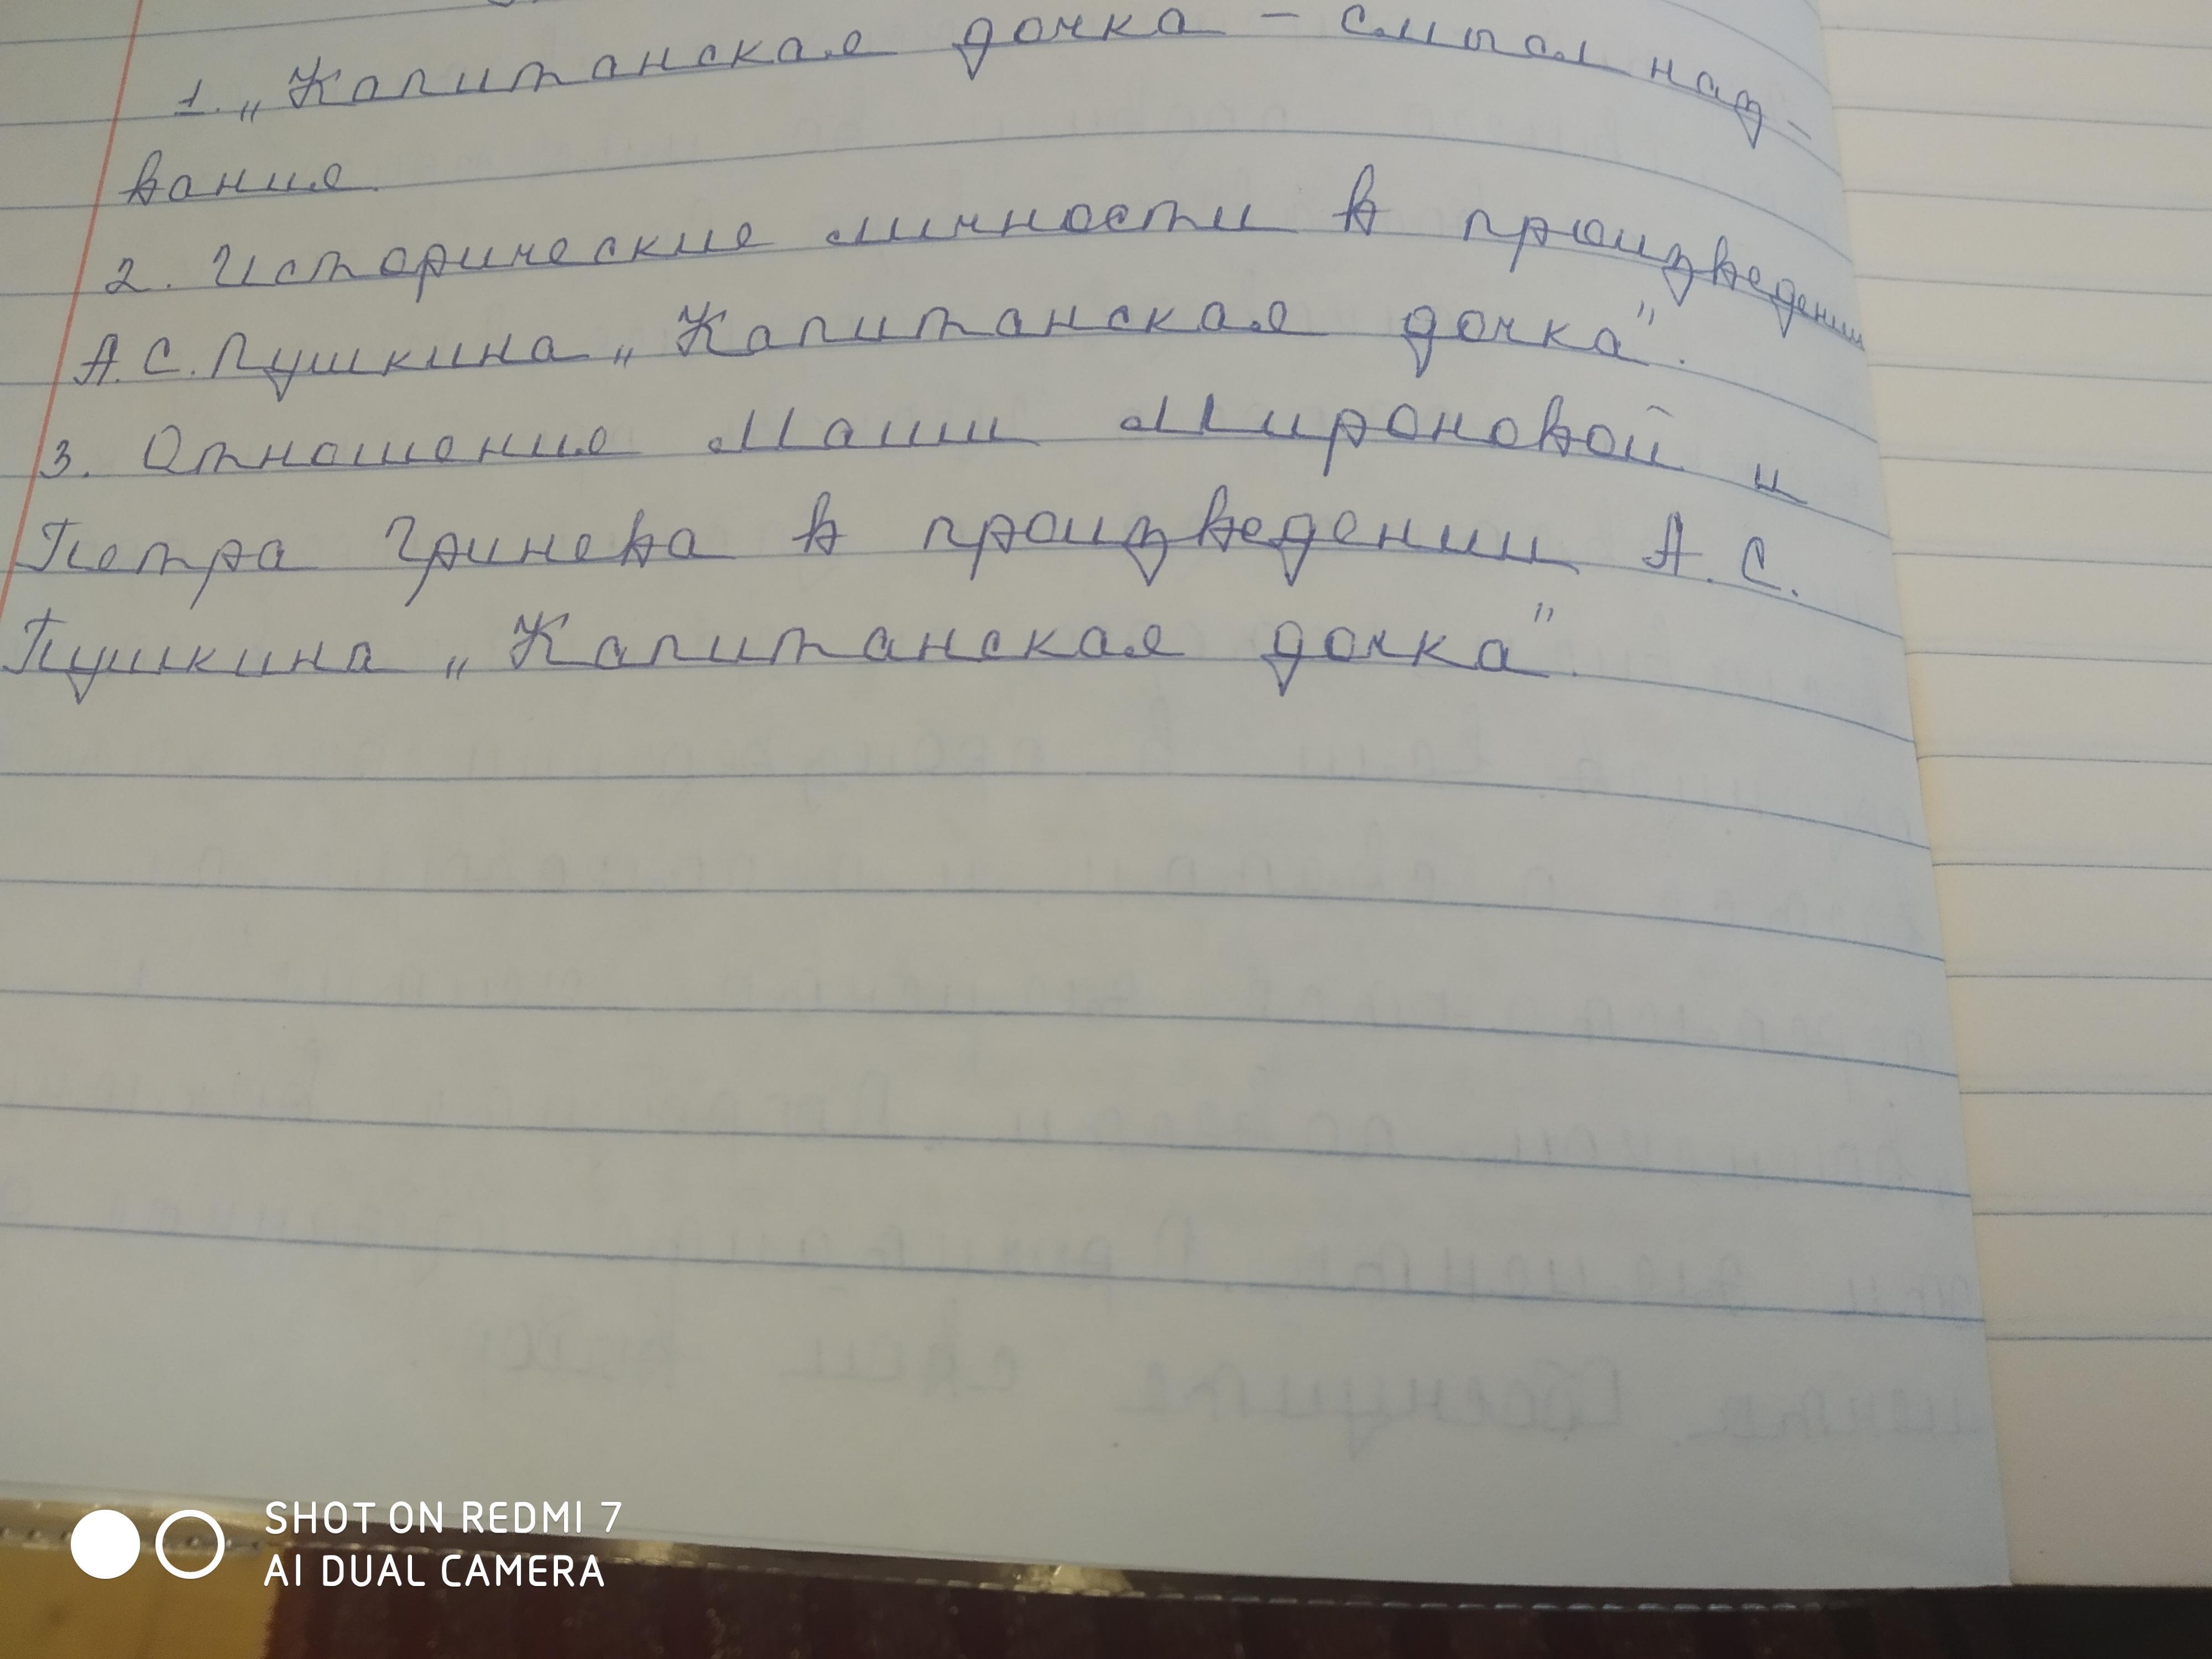 1. „Капитанская дочка – смысл наз-
вание.
2. Исторические личности в произведении
А.С. Пушкина „Капитанская дочка".
3. Отношение Маши Мироновой и
Петра Гринева в произведении А. С.
Пушкина „Капитанская дочка".
SHOT ON REDMI 7
AI DUAL CAMERA